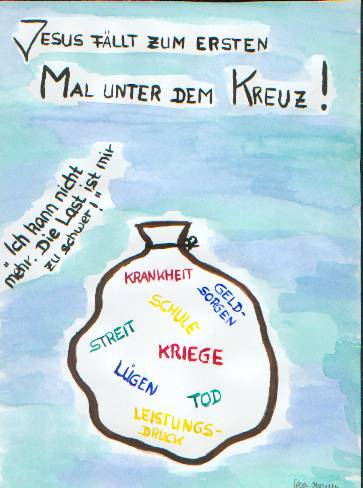 JESUS FÄLLT ZUM ERSTEN
MAL UNTER DEM KREUZ!
"Ich kann nicht
mehr. Die Last ist mir
zu schwer!"
KRANKHEIT
GELD-
SORGEN
SCHULE
STREIT
KRIEGE
LÜGEN
TOD
LEISTUNGS-
DRUCK